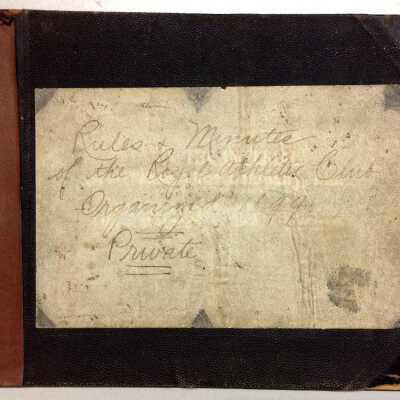 Rules & Minutes
of the Royal Athletic Club
Organized
Private